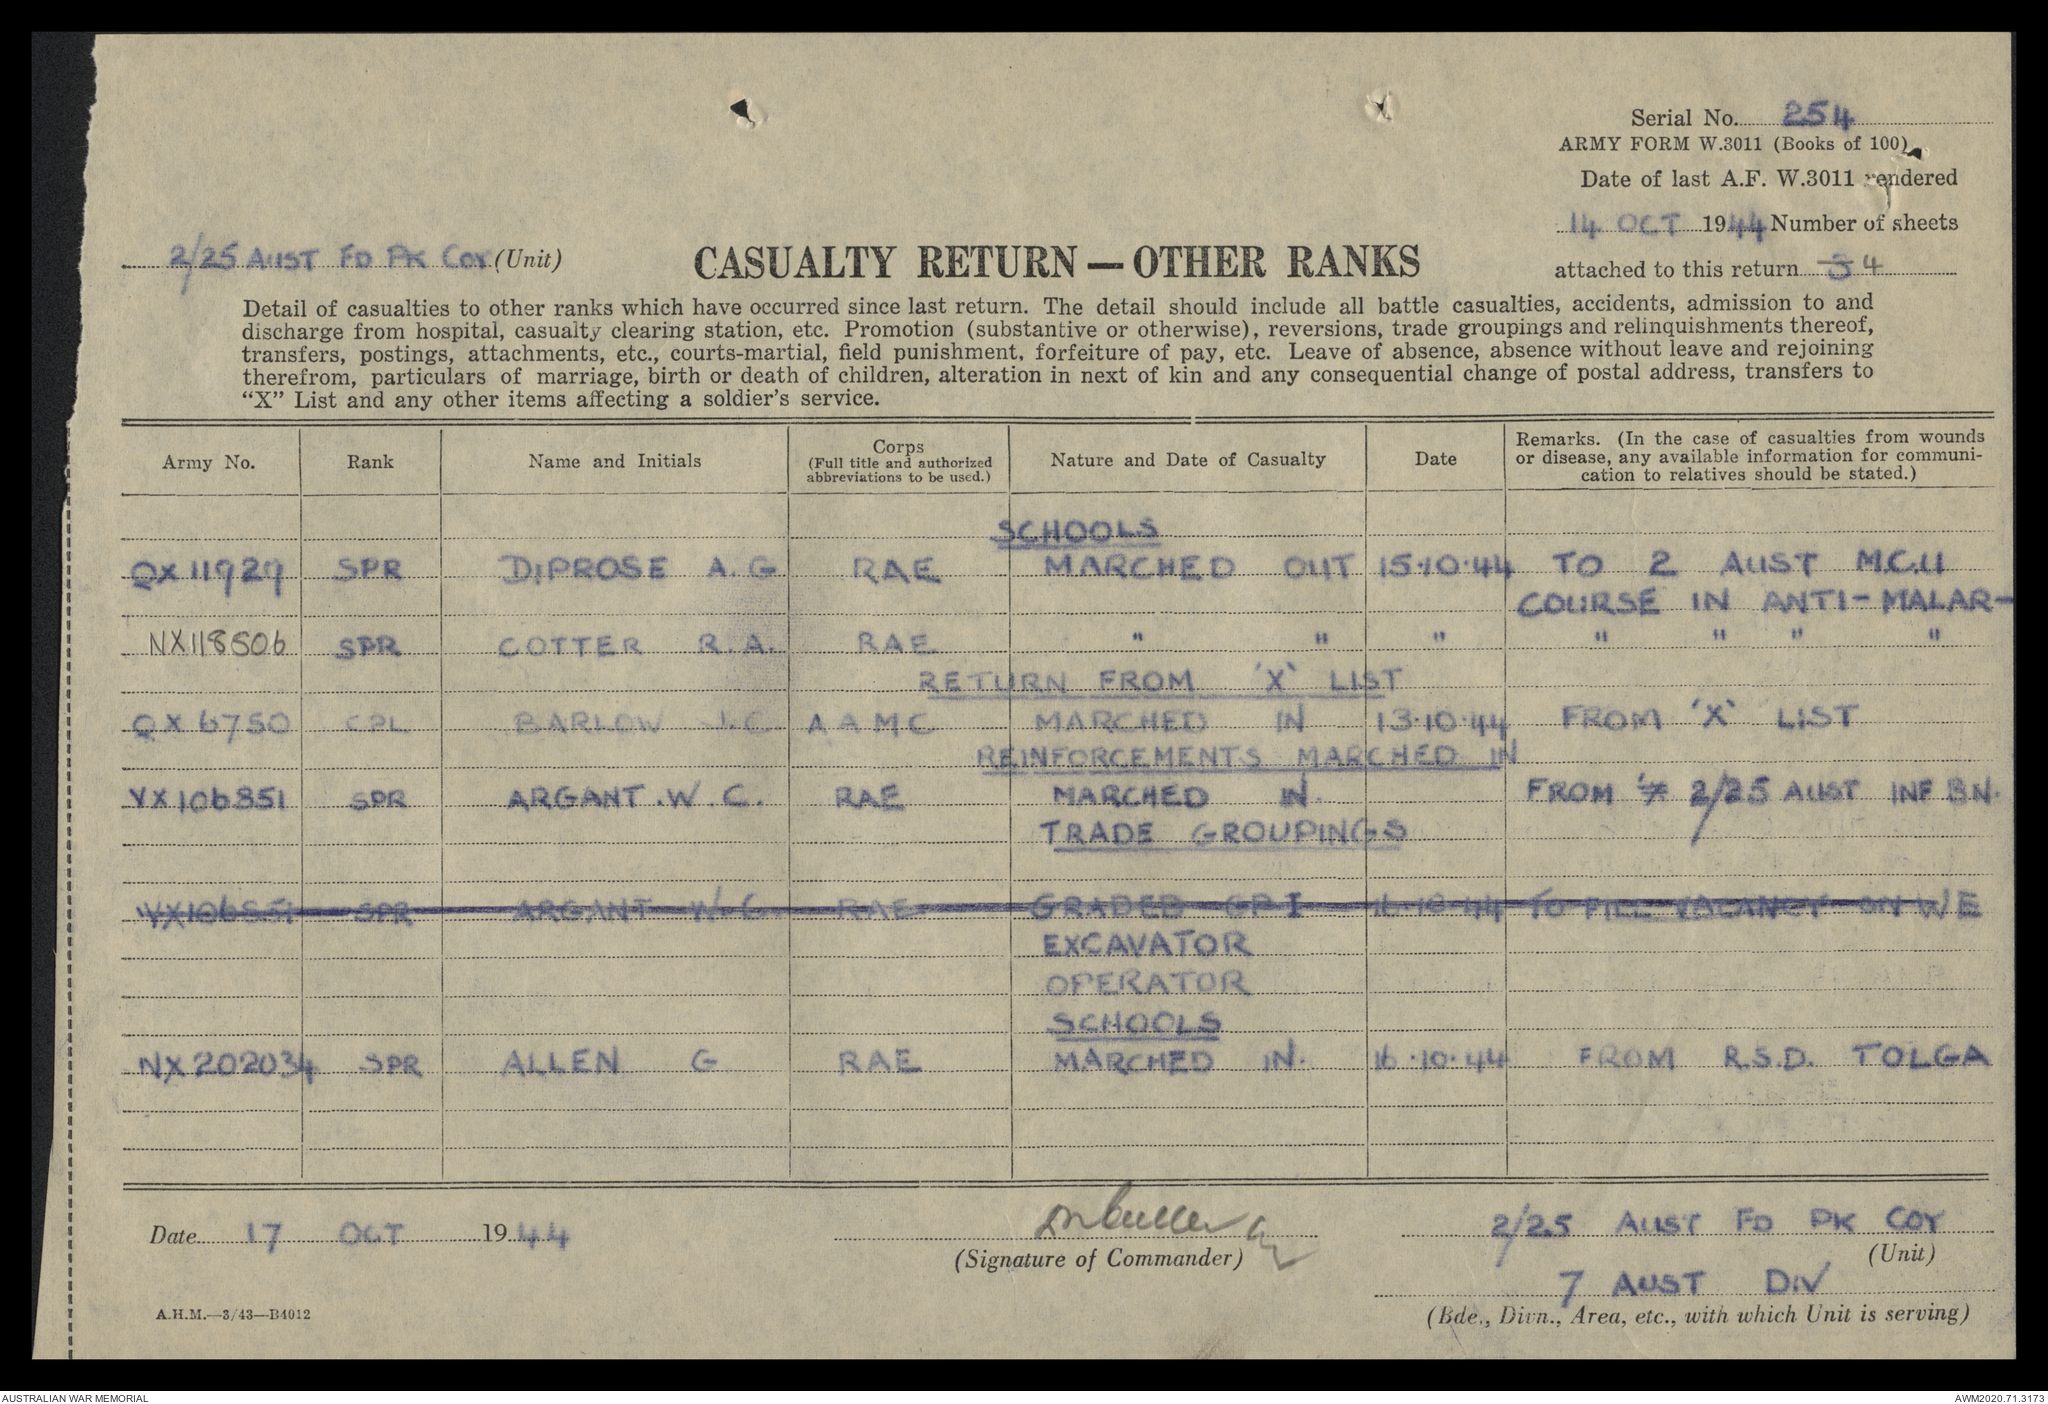 Serial No. 254
ARMY FORM W.3011 (Books of 100)
Date of last A.F. W.3011 rendered
14 OCT 1944 Number of sheets
attached to this return 3 4
2/25 AUST FD PK COY (Unit)
CASUALTY RETURN — OTHER RANKS
Detail of casualties to other ranks which have occurred since last return. The detail should include all battle casualties, accidents, admission to and
discharge from hospital, casualty clearing station, etc. Promotion (substantive or otherwise), reversions, trade groupings and relinquishments thereof,
transfers, postings, attachments, etc., courts-martial, field punishment, forfeiture of pay, etc. Leave of absence, absence without leave and rejoining
therefrom, particulars of marriage, birth or death of children, alteration in next of kin and any consequential change of postal address, transfers to
“X” List and any other items affecting a soldier’s service.
Army No. Rank Name and Initials Corps (Full title and authorized abbreviations to be used.) Nature and Date of Casualty Date Remarks. (In the case of casualties from wounds or disease, any available information for communi-cation to relatives should be stated.)
SCHOOLS
QX 11929 SPR DIPROSE A.G RAE MARCHED OUT 15.10.44 TO 2 AUST M.C.U
COURSE IN ANTI-MALAR-
NX118506 SPR COTTER R.A. RAE " " " " " " "
RETURN FROM 'X' LIST
QX 6750 CPL BARLOW J.C AAMC MARCHED IN 13.10.44 FROM 'X' LIST
REINFORCEMENTS MARCHED IN
VX106851 SPR ARGANT .W. C. RAE MARCHED IN. FROM 2/25 AUST INF BN.
TRADE GROUPINGS
VX106851 SPR ARGANT W.C. RAE GRADED GP I 16.10.44 TO FILL VACANCY ON W/E
EXCAVATOR
OPERATOR
SCHOOLS
NX 202034 SPR ALLEN G RAE MARCHED IN. 16.10.44 FROM R.S.D. TOLGA
Date 17 OCT 1944
(Signature of Commander)
2/25 AUST FD PK COY
(Unit)
7 AUST DIV
(Bde., Divn., Area, etc., with which Unit is serving)
A.H.M.—3/43—B4012
AUSTRALIAN WAR MEMORIAL
AWM2020.71.3173